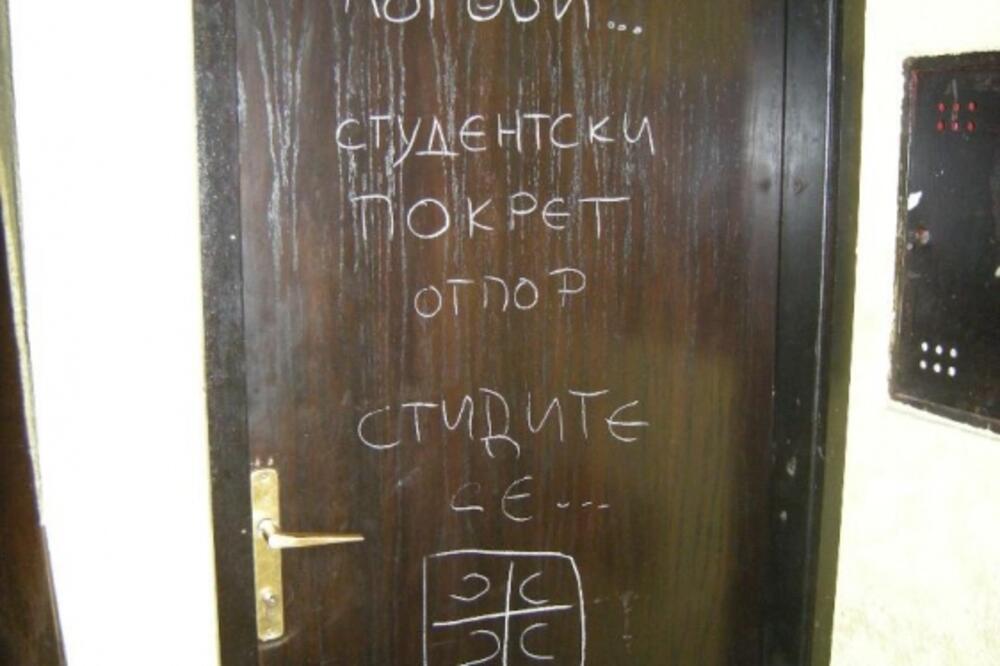 СТУДЕНТСКИ
ПОКРЕТ
ОТПОР
СТИДИТЕ
СЕ...